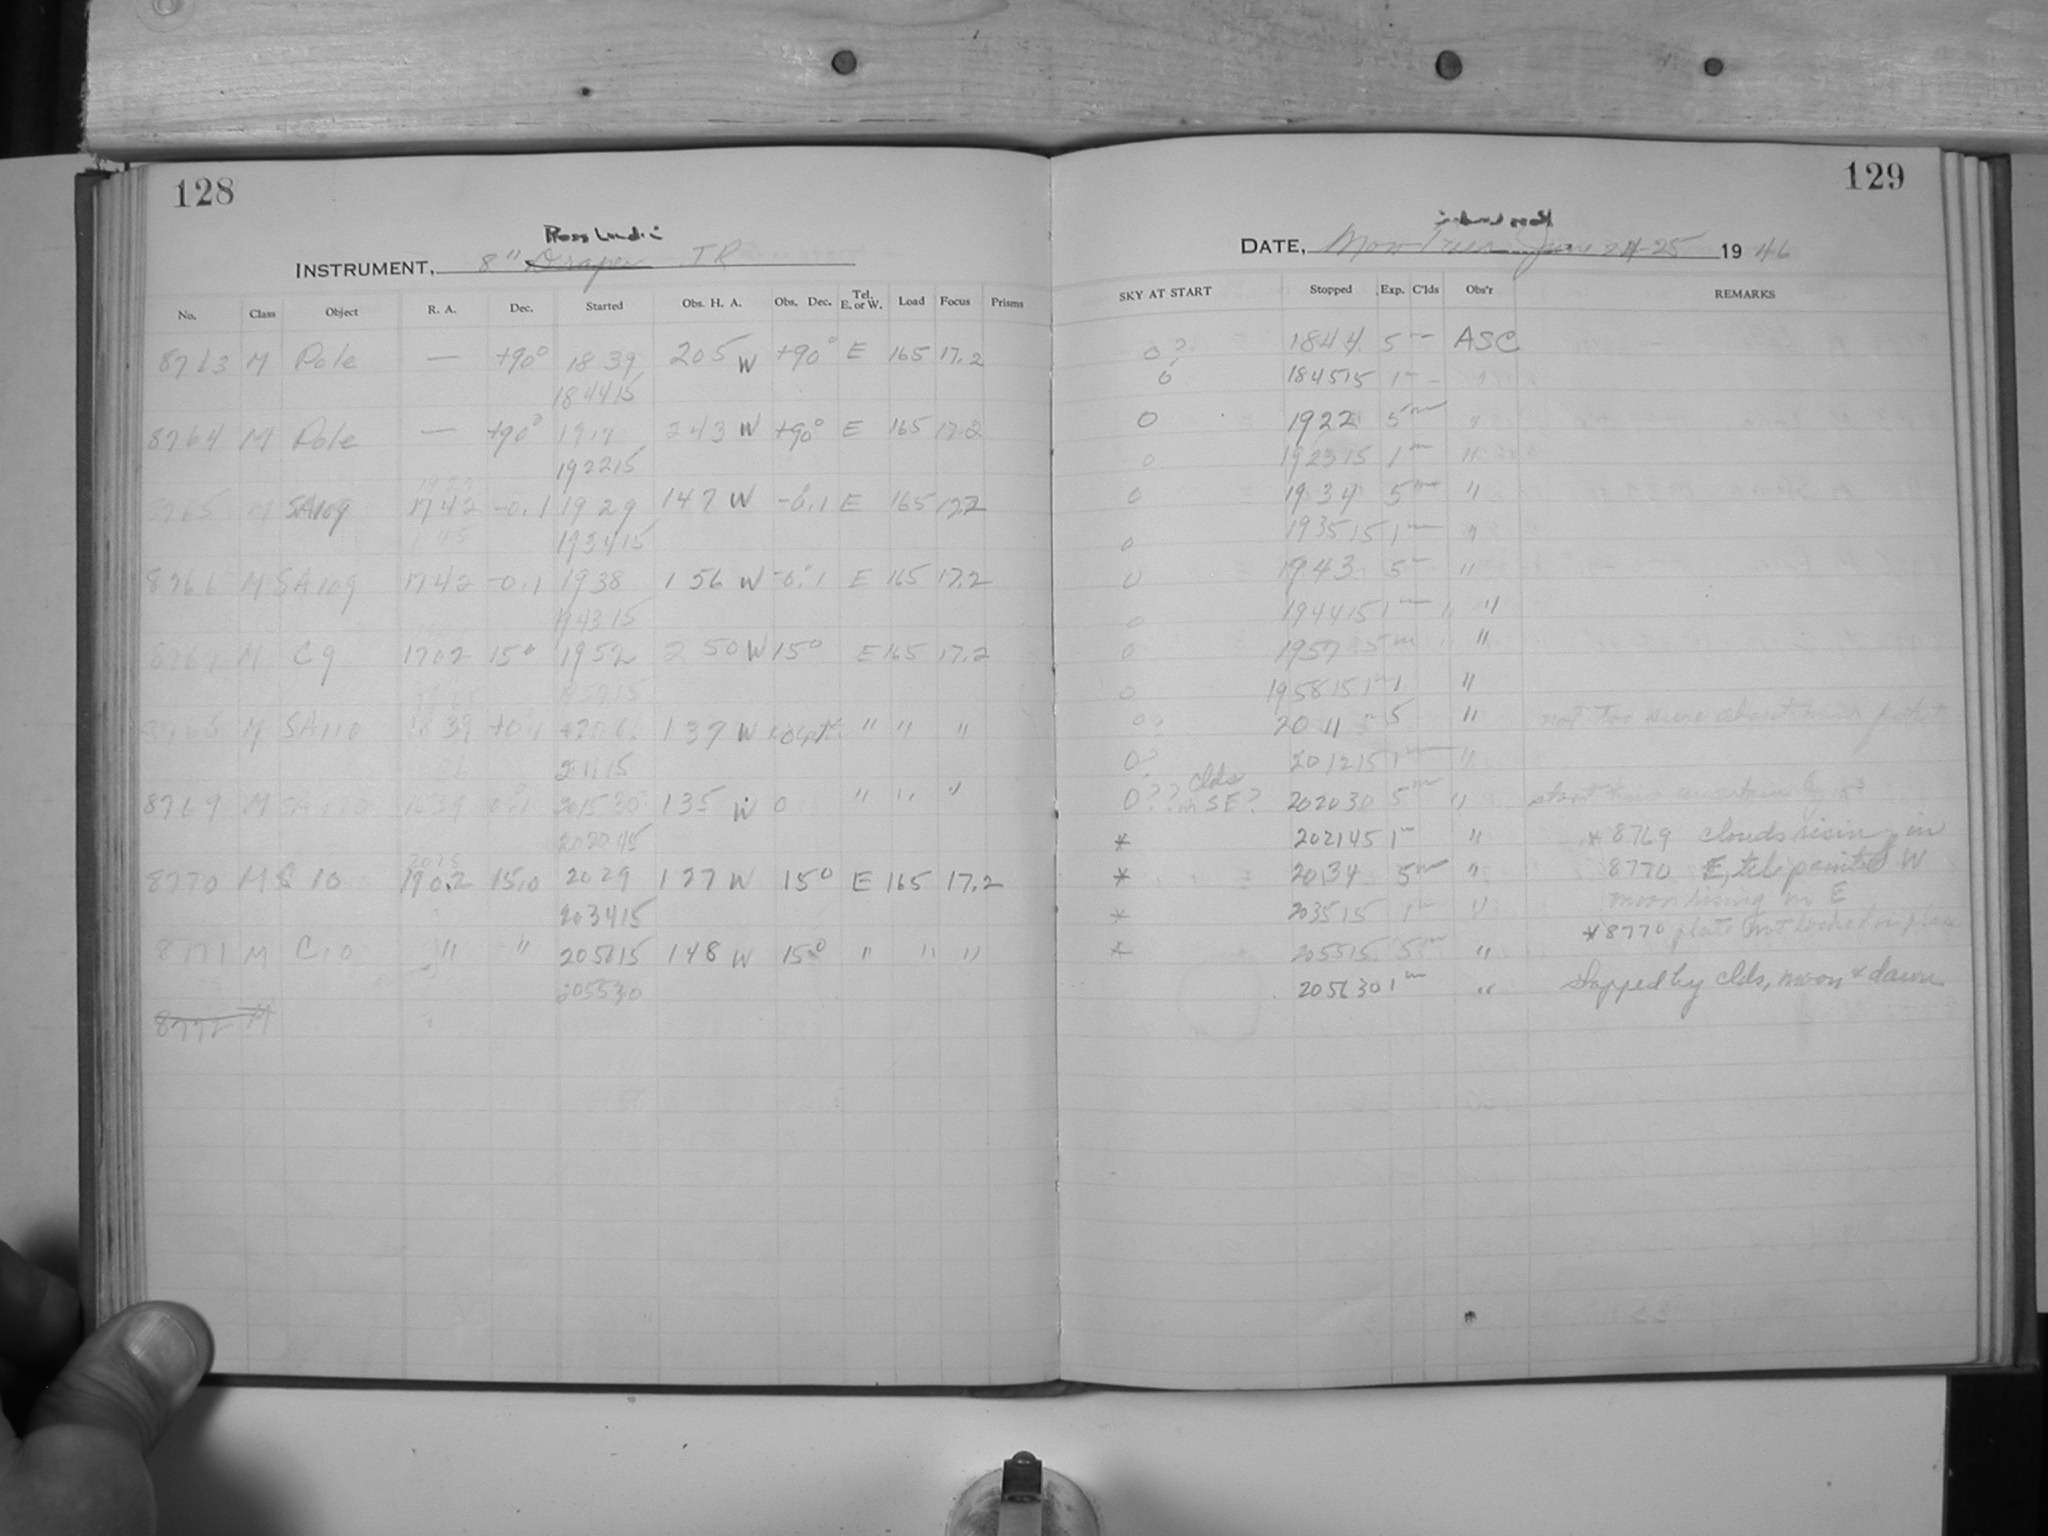 128
129
Ross Lundin
INSTRUMENT, 8" Draper IR
DATE, Mon-Tues June 24-25 1946
No. Class Object R. A. Dec. Started Obs. H. A. Obs. Dec. Tel. E. or W. Load Focus Prisms
SKY AT START Stopped Exp. C'lds Obs'r REMARKS
8763 M Pole — +90° 18 39 205 W +90° E 165 17.2 0? 1844 5 ASC
184415 0 184515 1 "
8764 M Pole — +90° 1917 243 W +90° E 165 17.2 0 1922 5m "
192215 0 192315 1m "
8765 M SA109 1742 -0.1 1929 147 W -0.1 E 165 17.2 0 1934 5m "
193415 0 193515 1m "
8766 M SA109 1742 -0.1 1938 156 W -0.1 E 165 17.2 0 1943 5 "
194315 0 194415 1m "
8767 M C9 1702 15° 1952 250 W 15° E 165 17.2 0 1957 5m "
195715 0 195815 1m "
8768 M SA110 1839 +0.1 2006 137 W " " " 0? 2011 5 " not too sure about
201115 0? 201215 1m "
8769 M SA110 1839 0.1 201530 135 W 0 " " " 0?? clds in SE? 202030 5m " start
202045 * 202145 1m " *8769 clouds rising in
8770 M C 10 1902 15.0 2029 127 W 15° E 165 17.2 * 2034 5m " 8770 E, tel. pointed W
203415 * 203515 1m " moon rising in E
*8770 plate not locked in place
8771 M C10 " " 205015 148 W 15° " " " * 205515 5m "
205530 205630 1m " Stopped by clds, moon & dawn
8772 M